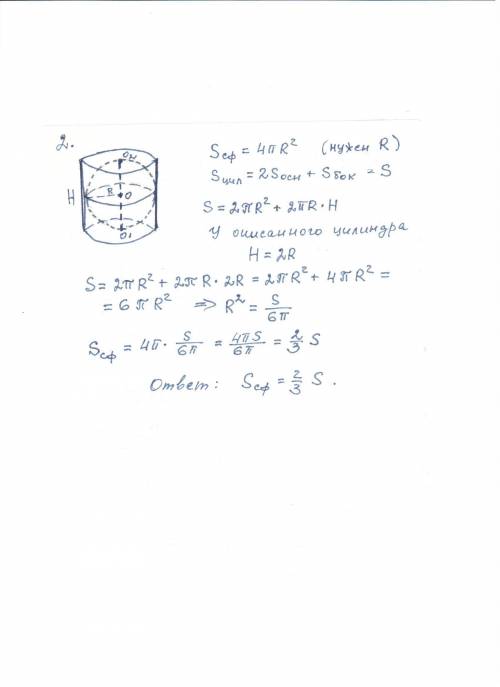 2.
O₂
H
R
O
O₁
Sсф = 4πR² (нужен R)
Sцил = 2Sосн + Sбок = S
S = 2πR² + 2πR·H
У описанного цилиндра
H = 2R
S = 2πR² + 2πR·2R = 2πR² + 4πR² =
= 6πR² ⇒ R² = S/6π
Sсф = 4π · S/6π = 4πS/6π = 2/3 S
Ответ: Sсф = 2/3 S.